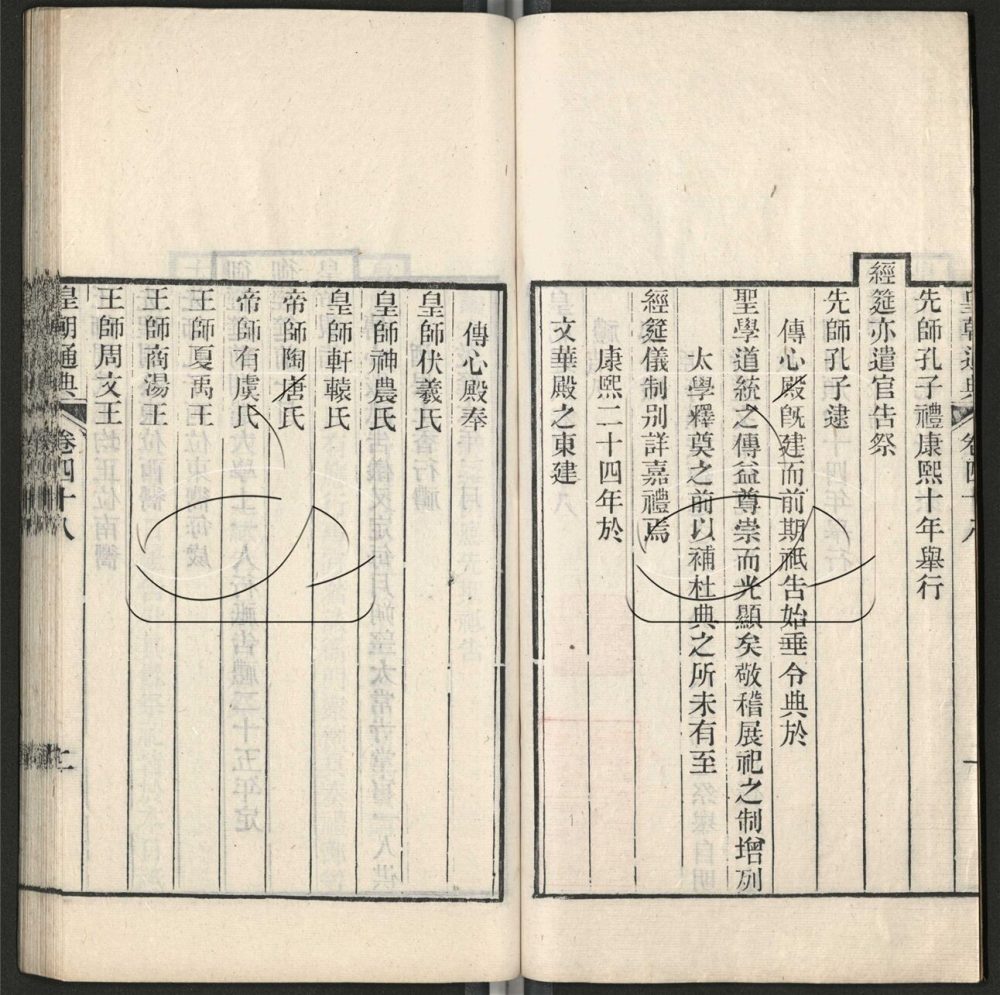 先師孔子禮康熙十年舉行
經筵亦遣官告祭
先師孔子逮
傳心殿旣建而前期祗告始垂令典於
聖學道統之傳益尊崇而光顯矣敬稽展祀之制增列
太學釋奠之前以補杜典之所未有至
經筵儀制別詳嘉禮焉
康熙二十四年於
文華殿之東建
傳心殿奉
皇師伏羲氏
皇師神農氏
皇師軒轅氏
帝師陶唐氏
帝師有虞氏
王師夏禹王
王師商湯王
王師周文王
皇朝通典 卷四十八 二